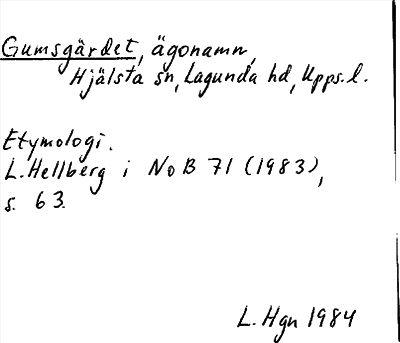 Gumsgärdet, ägonamn,
Hjälsta sn, Lagunda hd, Upps.l.
Etymologi.
L. Hellberg i NoB 71 (1983),
s. 63.
L. Hgn 1984